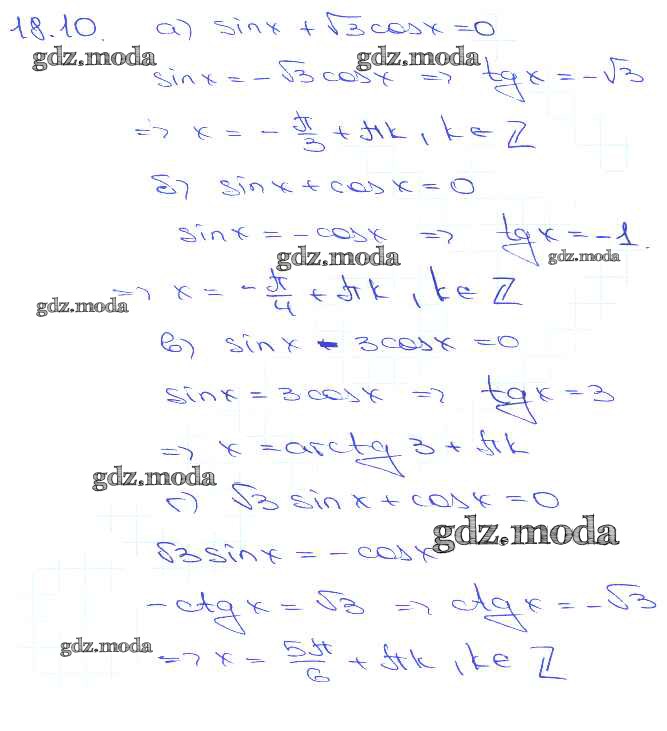 18.10. а) sinx + √3cosx = 0
gdz.moda gdz.moda
sinx = -√3cosx => tgx = -√3
=> x = -π/3 + πk, k ∈ ℤ
б) sinx + cosx = 0
sinx = -cosx => tgx = -1.
gdz.moda gdz.moda
=> x = -π/4 + πk, k ∈ ℤ
gdz.moda
в) sinx - 3cosx = 0
sinx = 3cosx => tgx = 3
=> x = arctg 3 + πk
gdz.moda
г) √3 sinx + cosx = 0
gdz.moda
√3sinx = -cosx
-ctgx = √3 => ctgx = -√3
gdz.moda
=> x = 5π/6 + πk, k ∈ ℤ